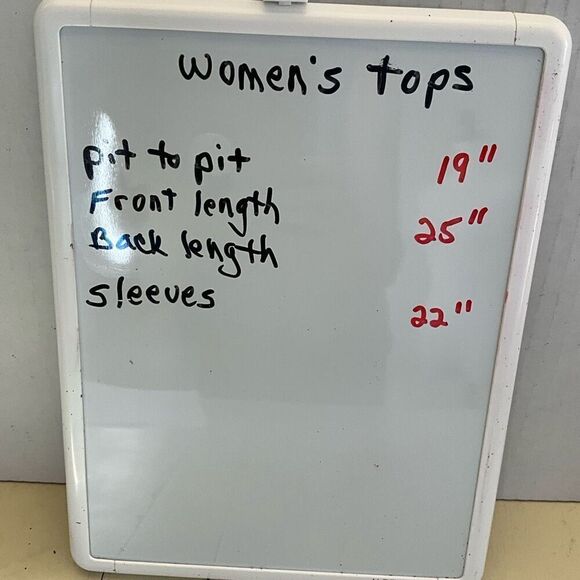 Women's tops
pit to pit 19"
Front length
Back length 25"
sleeves 22"